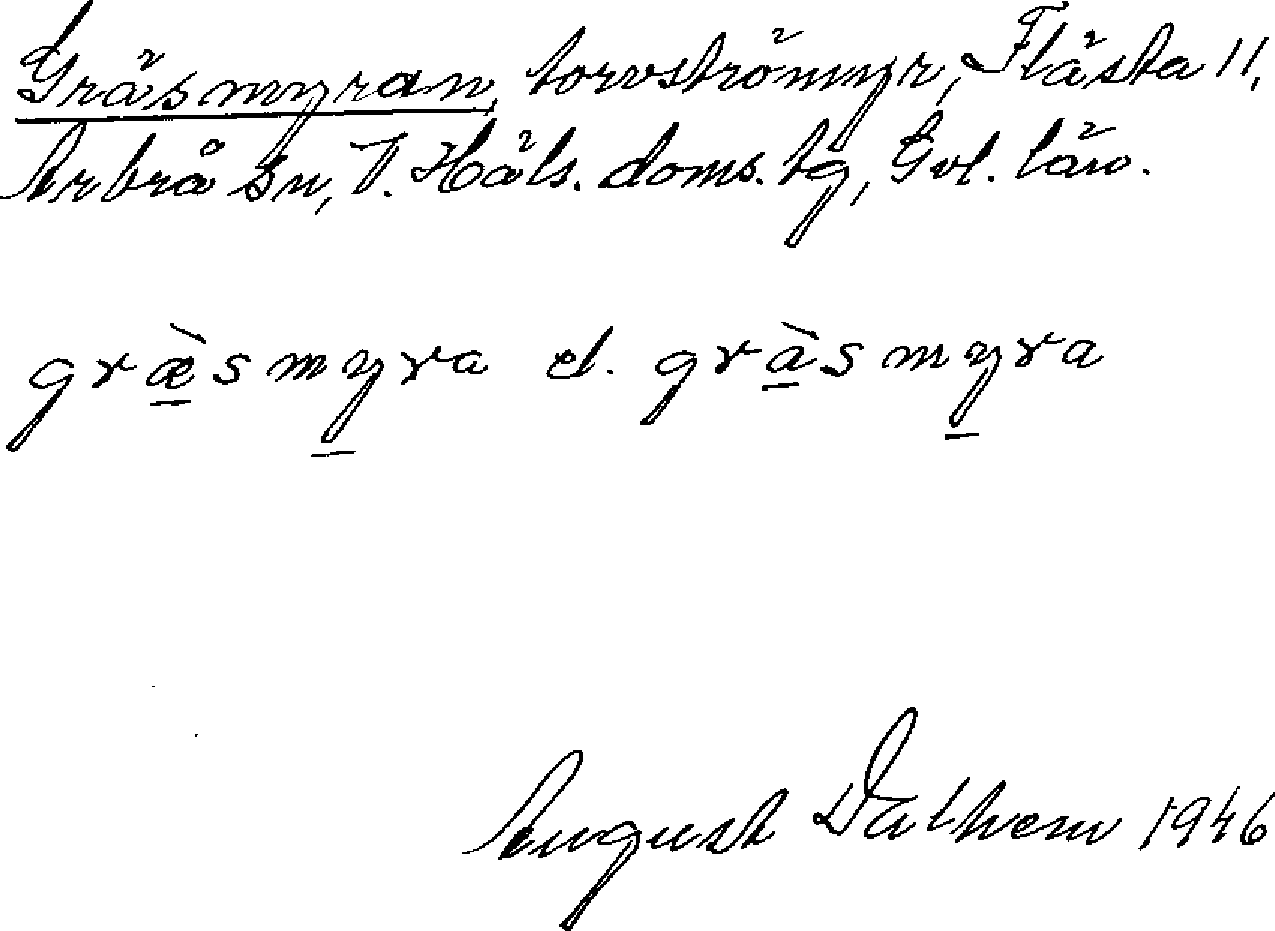 Gräsmyran, torvströmyr, Flästa 11,
Arbrå sn, V. Häls. doms. tg, Gvl. län.
græ̠̀smy̠ra el. grà̠smy̠ra
August Dalhem 1946